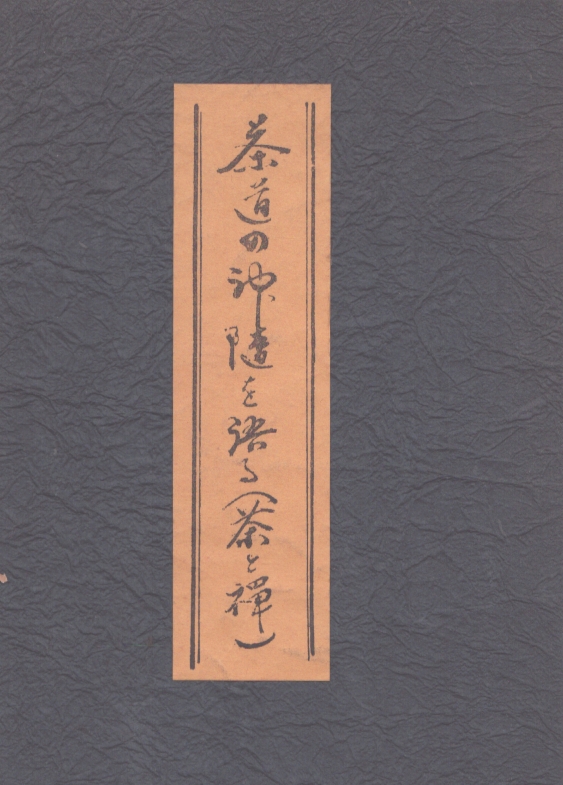 茶道の神髄を語る(茶と禅)